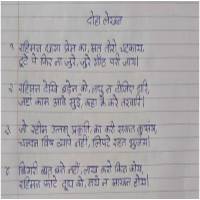 दोहा लेखन
१ रहिमन धागा प्रेम का, मत तोरो चटकाय,
टूटे पे फिर ना जुरे, जुरे गाँठ परी जाय।
२ रहिमन देखि बड़ेन को, लघु न दीजिए डारि,
जहां काम आवे सुई, कहा करे तरवारि।
३ जो रहीम उत्तम प्रकृति, का करि सकत कुसंग,
चन्दन विष व्यापे नहीं, लिपटे रहत भुजंग।
४ बिगरी बात बने नहीं, लाख करो किन कोय,
रहिमन फाटे दूध को, मथे न माखन होय।